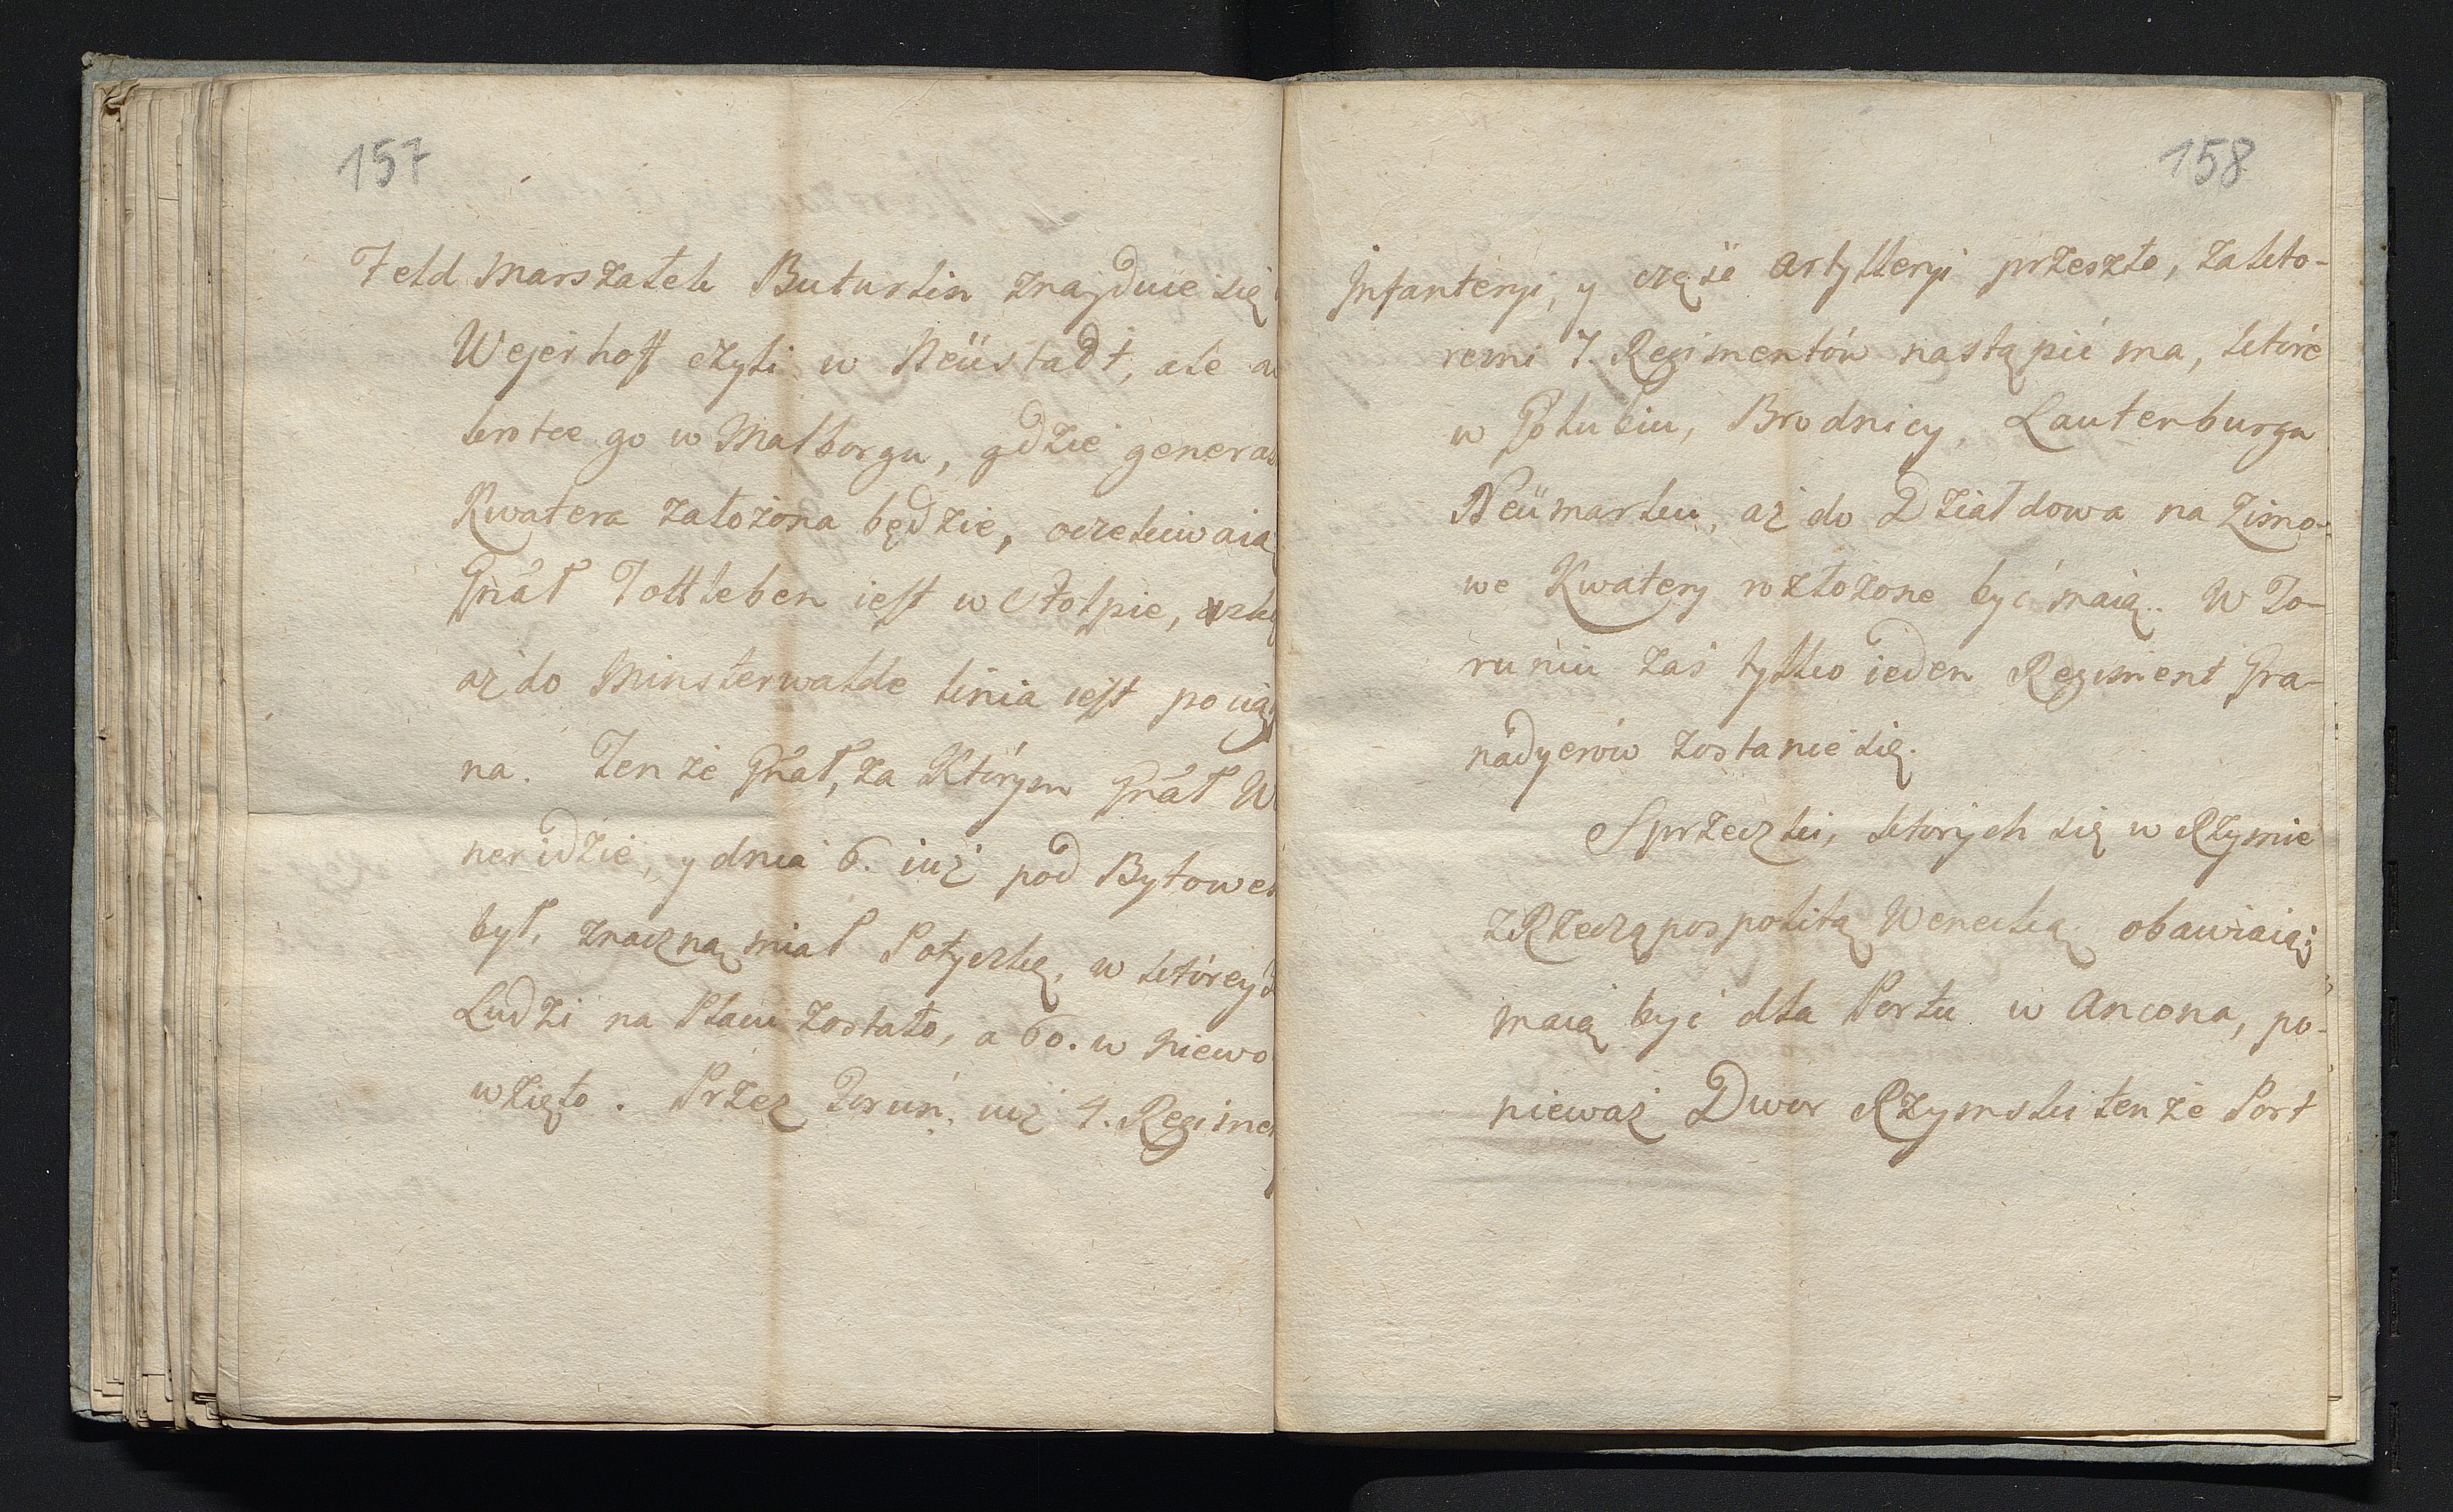 157
Feld Marszałek Buturlin znajduie się
Wejerhoff czyli w Neüstadt, ale
krotce go w Malborgu, gdzie genera
Kwatera założona będzie, oczekiwaią
Gnał Tottleben iest w Stolpie,
aż do Minsterwalde linia iest pociąg
na. Tenże Gnał, za Którym Gnał W
ner idzie, y dnia 6. iuż pod Bytowe
był, znaczną miał Potyczkę, w którey
Ludzi na Placu zostało, a 60. w niewo
wzięto. Przez Toruń iuż 4. Regime
158
Infanteryi, y część Artylleryi przeszło, zakto-
remi 7. Regimentów nastąpić ma, które
w Golubiu, Brodnicy, Lauterburgu
Neümarku, aż do Działdowa na Zimo-
we Kwatery rozłożone być maią. W To-
runiu zaś tylko ieden Regiment Gra-
nadyerów zostanie się.
Sprzeczki, których się w Rzymie
z Rzecząpospolitą Wenecką obawiaią;
maią być dla Portu w Ancona, po-
nieważ Dwor Rzymski tenże Port